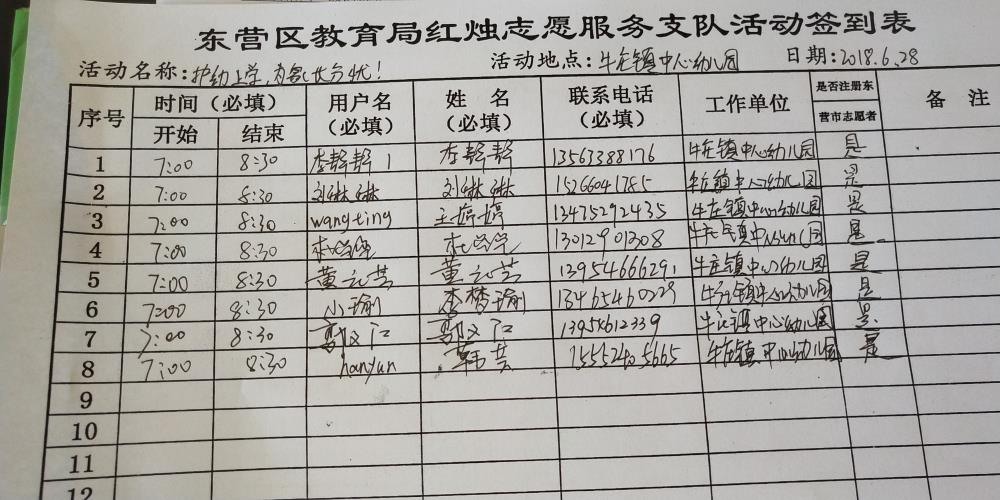 东营区教育局红烛志愿服务支队活动签到表
活动名称:护幼上学,为家长分忧! 活动地点:牛庄镇中心幼儿园 日期:2018.6.28
序号 时间(必填) 用户名(必填) 姓名(必填) 联系电话(必填) 工作单位 是否注册东营市志愿者 备注
开始 结束
1 7:00 8:30 李帮帮1 李帮帮 13563388176 牛庄镇中心幼儿园 是
2 7:00 8:30 刘琳琳 刘琳琳 15266041785 牛庄镇中心幼儿园 是
3 7:00 8:30 wangting 王婷婷 13475292435 牛庄镇中心幼儿园 是
4 7:00 8:30 13012901308 牛庄镇中心幼儿园 是
5 7:00 8:30 董元芸 董元芸 13954666291 牛庄镇中心幼儿园 是
6 7:00 8:30 小瑜 李梦瑜 13465460229 牛庄镇中心幼儿园 是
7 7:00 8:30 牛庄镇中心幼儿园 是
8 7:00 8:30 hanyun 韩芸 15552405665 牛庄镇中心幼儿园 是
9
10
11
12